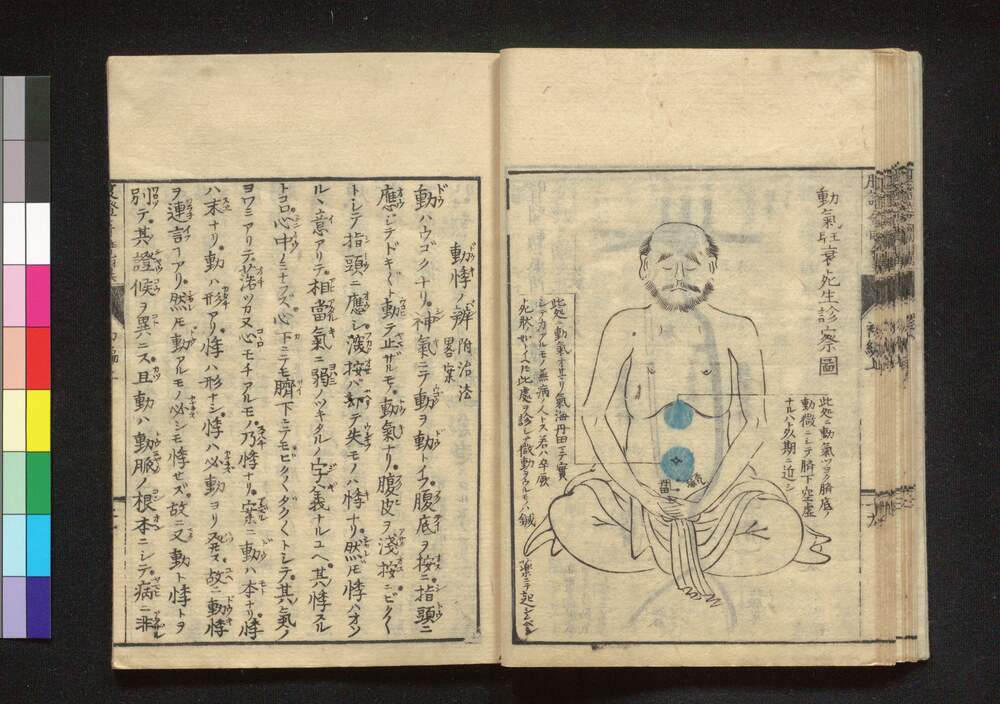 動氣旺衰死生診察圖
此処ニ動氣ツヨク臍底ノ
動微ニシテ臍下空虚
ナルハ大畧期ニ近シ
此処ニ動氣オサマリ氣海丹田マテ實
シテカアルモノ無病ノ人トス若ハ卒厥
死狀ガトイヘ𪜈此處ヲ診シテ微動タルモノハ鍼
藥ニテ起シムベシ
氣海
丹田
動悸ノ辨 附治法畧案
動ハウゴクナリ。神氣ニテ動ヲ動トイフ。腹底ヲ按ニ指頭ニ
應シテドキ〱ト動テ止ザルモノ。動氣ナリ。腹皮ヲ淺按ニビク〱
トシテ指頭ニ應シ深按バ却テ失モノハ悸ナリ。然𪜈悸ハオソ
ルヽ意アリテ。相當氣ニ弱ノツキタルノ字義ナルユヘ。其悸スル
トコロ心中ノミニアラズ。心下ニテモ臍下ニテモビク〱ダク〱トシテ。其氣ノ
ヨワミアリテ。落ツカヌ心モチアルモノ。乃悸ナリ。案ニ動ハ本ナリ。悸
ハ末ナリ。動ハ形アリ。悸ハ形ナシ。悸ハ必動ヨリ発ス。故ニ動悸
ヲ連言ヿアリ。然𪜈動アルモノ必シモ悸セズ。故ニ又動ト悸トヲ
別テ。其證候ヲ異ニス。且動ハ動脈ノ根本ニシテ。病ニ非